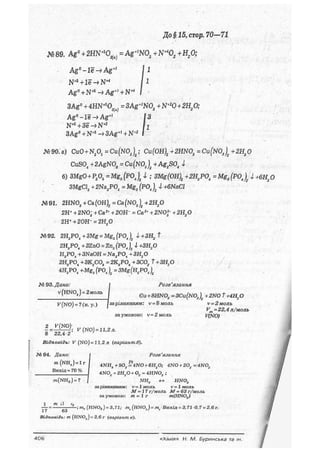 До § 15, стор. 70—71
№ 89. Ag⁰ + 2HN⁺⁵O₃₍к₎ = Ag⁺¹NO₃ + N⁺⁴O₂ + H₂O;
Ag⁰ – 1ē → Ag⁺¹ | 1
N⁺⁵ + 1ē → N⁺⁴ | 1
Ag⁰ + N⁺⁵ → Ag⁺¹ + N⁺⁴
3Ag⁰ + 4HN⁺⁵O₃₍к₎ = 3Ag⁺¹NO₃ + N⁺²O + 2H₂O;
Ag⁰ – 1ē → Ag⁺¹ | 3
N⁺⁵ + 3ē → N⁺² | 1
3Ag⁰ + N⁺⁵ → 3Ag⁺¹ + N⁺²
№ 90. а) CuO + N₂O₅ = Cu(NO₃)₂; Cu(OH)₂ + 2HNO₃ = Cu(NO₃)₂ + 2H₂O
CuSO₄ + 2AgNO₃ = Cu(NO₃)₂ + Ag₂SO₄ ↓
б) 3MgO + P₂O₅ = Mg₃(PO₄)₂ ↓; 3Mg(OH)₂ + 2H₃PO₄ = Mg₃(PO₄)₂ ↓ + 6H₂O
3MgCl₂ + 2Na₃PO₄ = Mg₃(PO₄)₂ ↓ + 6NaCl
№ 91. 2HNO₃ + Ca(OH)₂ = Ca(NO₃)₂ + 2H₂O
2H⁺ + 2NO₃⁻ + Ca²⁺ + 2OH⁻ = Ca²⁺ + 2NO₃⁻ + 2H₂O
2H⁺ + 2OH⁻ = 2H₂O
№ 92. 2H₃PO₄ + 3Mg = Mg₃(PO₄)₂ ↓ + 3H₂ ↑
2H₃PO₄ + 3ZnO = Zn₃(PO₄)₂ ↓ + 3H₂O
H₃PO₄ + 3NaOH = Na₃PO₄ + 3H₂O
2H₃PO₄ + 3K₂CO₃ = 2K₃PO₄ + 3CO₂ ↑ + 3H₂O
4H₃PO₄ + Mg₃(PO₄)₂ = 3Mg(H₂PO₄)₂
№ 93. Дано: Розв'язання
ν(HNO₃) = 2 моль
3Cu + 8HNO₃ = 3Cu(NO₃)₂ + 2NO ↑ + 4H₂O
V(NO) = ? (н. у.) за рівнянням: ν = 8 моль ν = 2 моль
Vₘ = 22,4 л/моль
за умовою: ν = 2 моль V(NO)
2/8 = V(NO)/(22,4·2); V(NO) = 11,2 л.
Відповідь: V (NO) = 11,2 л (варіант б).
№ 94. Дано: Розв'язання
m (NH₃) = 1 т
Вихід = 70 %
4NH₃ + 5O₂ = 4NO + 6H₂O; 4NO + 2O₂ = 4NO₂
4NO₂ + 2H₂O + O₂ = 4HNO₃;
m(HNO₃) = ? NH₃ ⇔ HNO₃
за рівнянням: ν = 1 моль ν = 1 моль
M = 17 г/моль M = 63 г/моль
за умовою: m = 1 т m(HNO₃)
m₁(HNO₃) = 3,71; m₂(HNO₃) = m₁·Вихід = 3,71·0,7 = 2,6 т.
Відповідь: m (HNO₃) = 2,6 т (варіант в).
406 «Хімія» Н. М. Буринська та ін.